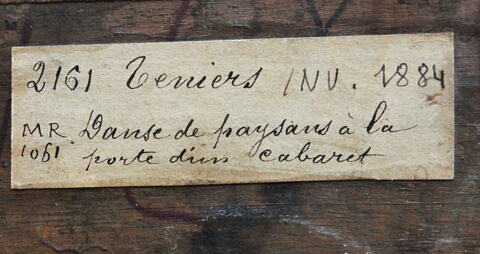 2161 Teniers INV. 1884
MR Danse de paysans à la
1061. porte d'un cabaret